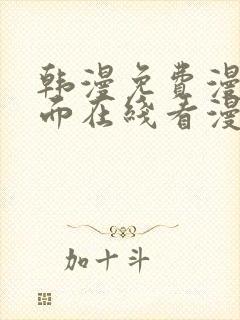 韩漫免费漫
面在线看漫
加十斗